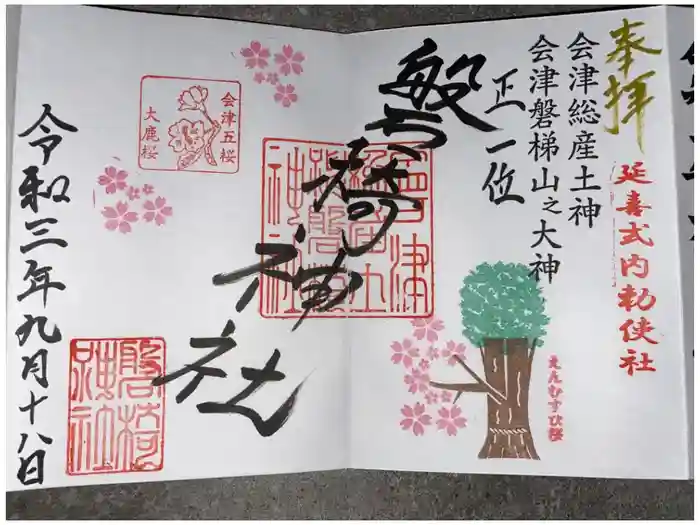 奉拝
延喜式内勅使社
会津総産土神
会津磐梯山之大神
正一位
磐椅神社
えんむすび桜
会津五桜
大鹿桜
磐椅神社
令和三年九月十八日